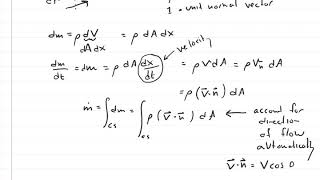 1 - unit normal vector
dm = ρ dV = ρ dA dx
dA dx
velocity
dm/dt = dm = ρ dA dx/dt = ρ V dA = ρ Vn dA
= ρ (V⃗·n⃗) dA
ṁ = ∫cs dm = ∫cs ρ (V⃗·n⃗) dA ← account for
direction
of flow
automatically
V⃗·n⃗ = V cos 0